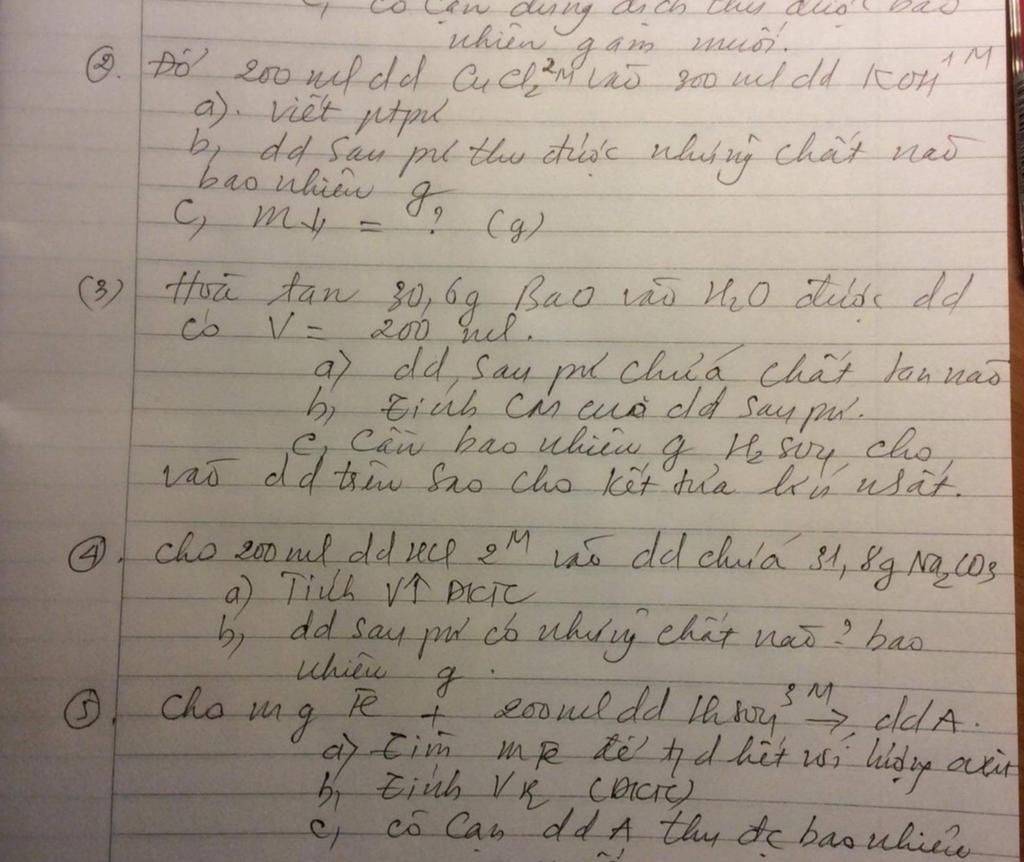 c, cô cạn dung dịch thu được bao
nhiêu gam muối.
②. Đổ 200 ml dd CuCl₂ 2M vào 300 ml dd KOH 1M
a). viết ptpư
b, dd sau pư thu được những chất nào
bao nhiêu g
c, m↓ = ? (g)
(3) Hoà tan 30,6g BaO vào H₂O được dd
có V = 200 ml.
a) dd, sau pư chứa chất tan nào
b, Tính CM của dd sau pư.
c, Cần bao nhiêu g H₂SO₄ cho
vào dd trên sao cho kết tủa lớn nhất.
④. Cho 200 ml dd HCl 2M vào dd chứa 31,8g Na₂CO₃
a) Tính V↑ ĐKTC
b, dd sau pư có những chất nào? bao
nhiêu g.
⑤. Cho m g Fe + 200 ml dd H₂SO₄ 3M → dd A.
a) Tìm mFe để t/d hết với lượng axit
b, Tính VK (ĐKTC)
c, cô cạn dd A thu đc bao nhiêu